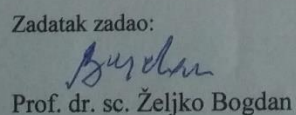 Zadatak zadao:
Bogdan
Prof. dr. sc. Željko Bogdan